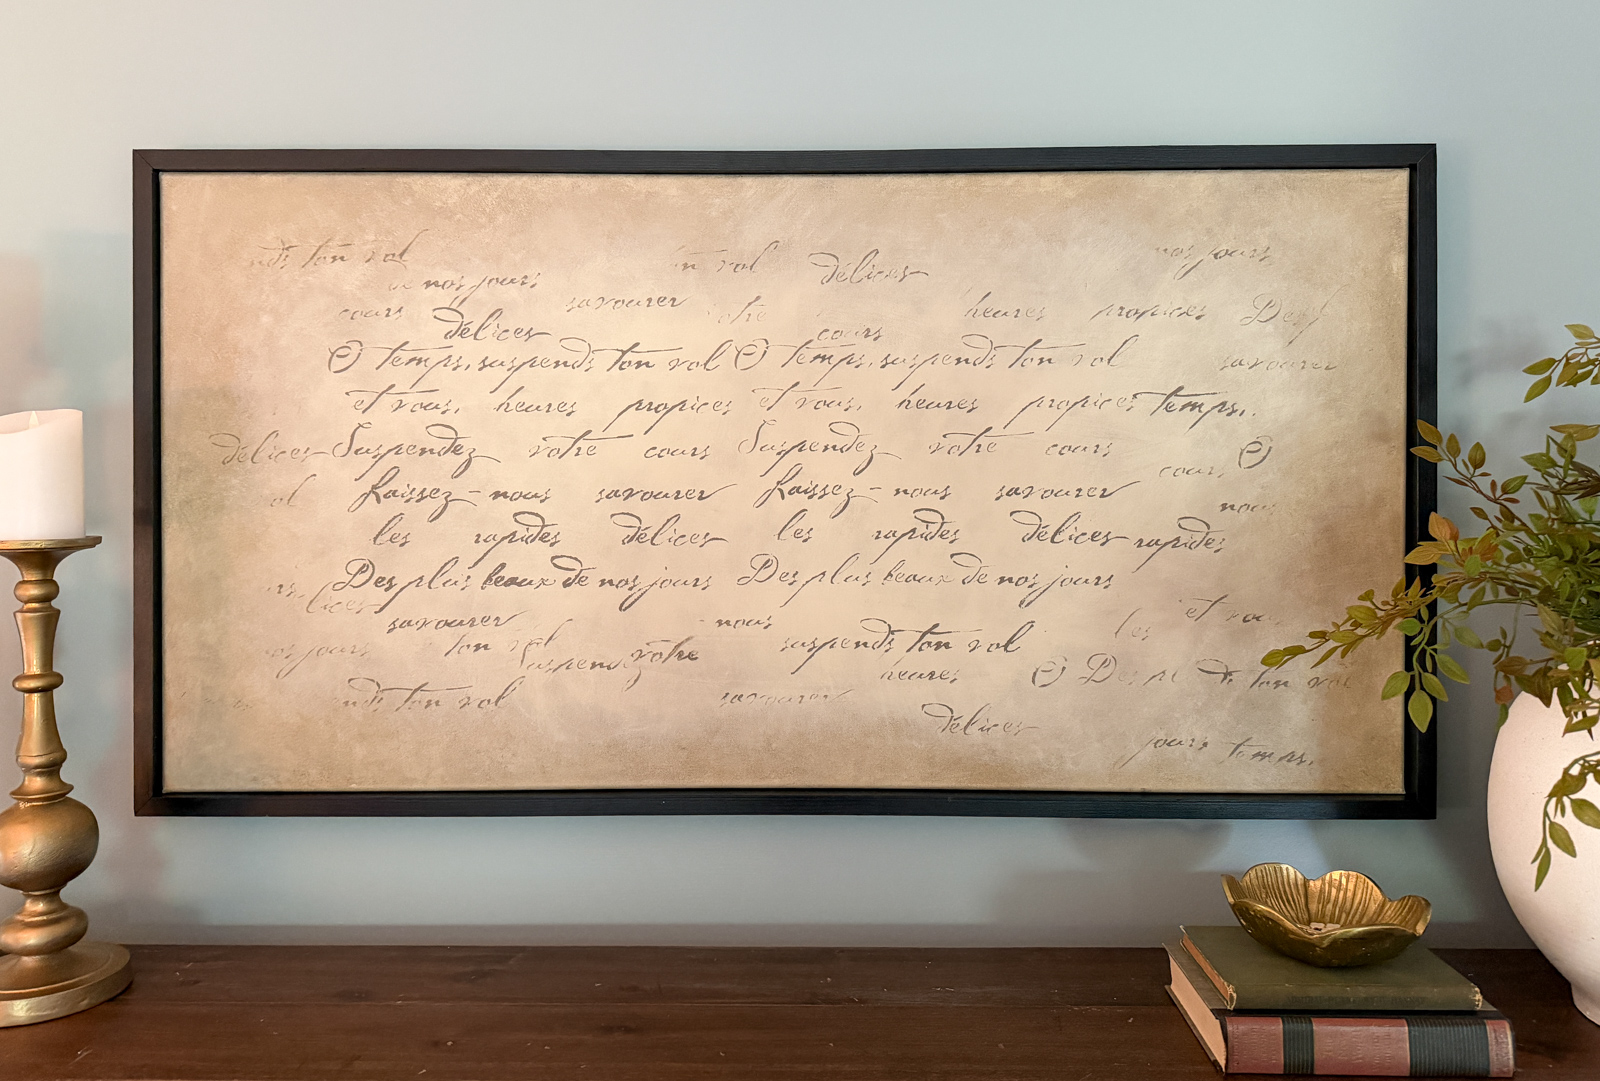 ton vol
nos jours
ton vol
délices
nos jours
cours
savourer
votre
heures propices Des
délices
cours
O temps, suspends ton vol O temps, suspends ton vol
savourer
et vous, heures propices et vous, heures propices temps,
délices Suspendez votre cours Suspendez votre cours
cours O
vol
Laissez-nous savourer Laissez-nous savourer
nous
les rapides délices les rapides délices rapides
Des plus beaux de nos jours Des plus beaux de nos jours
lices
savourer
nous
les
et vous
nos jours
ton vol
Suspend votre
suspends ton vol
heures
O Des pl
ton vol
nds ton vol
savourer
délices
jours temps,